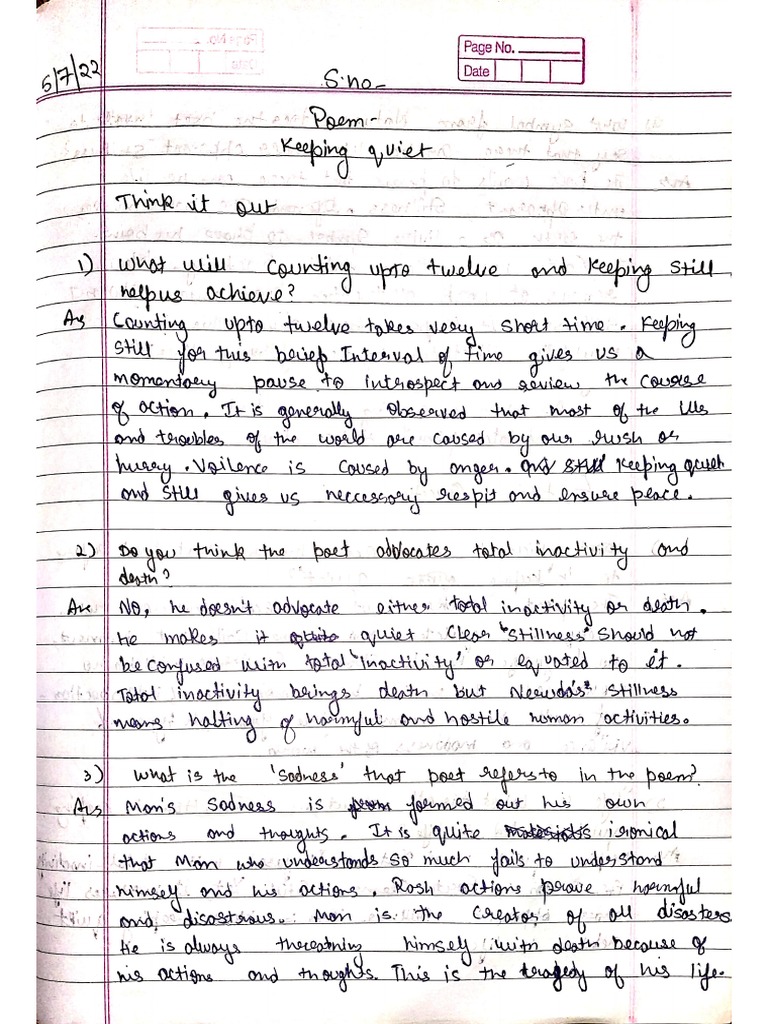 Page No.
Date
5/7/22
S.no-
Poem-
Keeping quiet
Think it out
1) What will counting upto twelve and keeping still
help us achieve?
Ans Counting upto twelve takes very short time. Keeping
still for this brief Interval of time gives us a
momentary pause to introspect and review the course
of action. It is generally observed that most of the ills
and troubles of the world are caused by our rush or
hurry. Voilence is caused by anger. Keeping quiet
and still gives us neccessory respit and ensure peace.
2) Do you think the poet advocates total inactivity and
death?
Ans No, he doesn't advocate either total inactivity or death.
He makes it quiet clear "Stillness" should not
be confused with total 'inactivity' or equated to it.
Total inactivity brings death but Neruda's stillness
means halting of harmful and hostile human activities.
3) What is the 'Sadness' that poet refers to in the poem?
Ans Man's Sadness is formed out his own
actions and thoughts. It is quite ironical
that Man who understands so much fails to understand
himself and his actions. Rash actions prove harmful
and disastrous. Man is the creator of all disasters
He is always threatning himself with death because of
his actions and thoughts. This is the tragedy of his life.